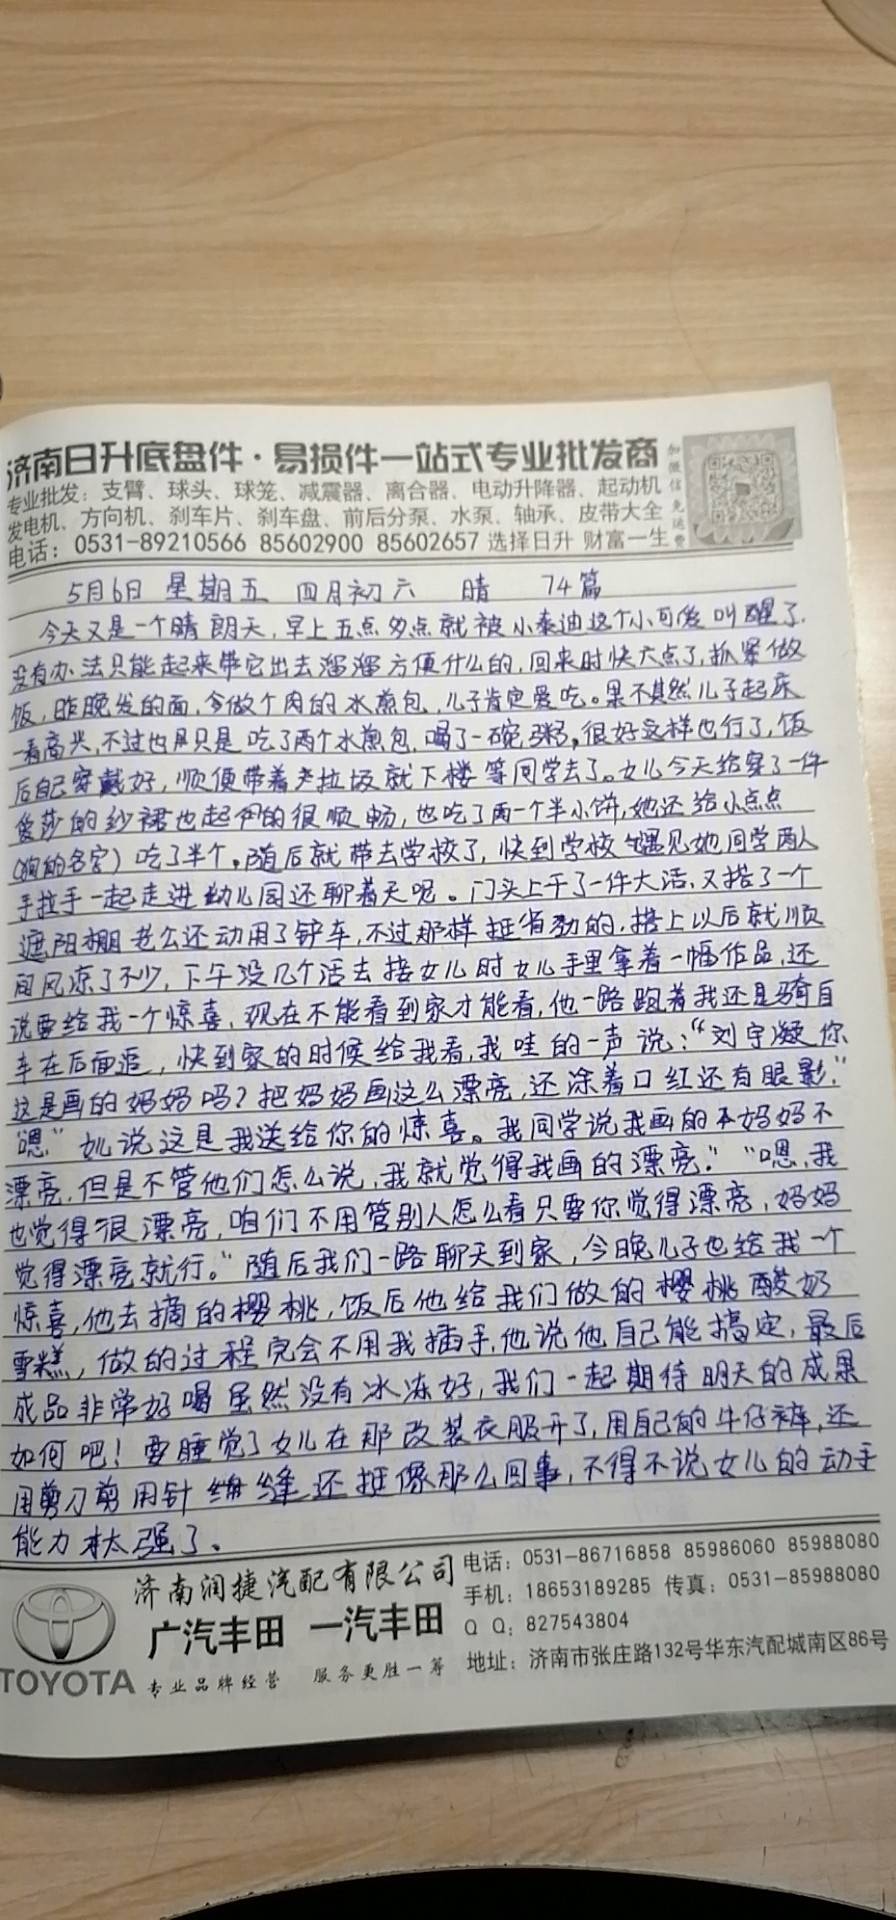 济南日升底盘件·易损件一站式专业批发商
加微信 免运费
专业批发：支臂、球头、球笼、减震器、离合器、电动升降器、起动机
发电机、方向机、刹车片、刹车盘、前后分泵、水泵、轴承、皮带大全
电话：0531-89210566 85602900 85602657 选择日升 财富一生
5月6日 星期五 四月初六 晴 74篇
今天又是一个晴朗天，早上五点多点就被小泰迪这个小可爱叫醒了，
没有办法只能起来带它出去溜溜方便什么的，回来时快六点了，抓紧做
饭，昨晚发的面，今做个肉的水煎包，儿子肯定爱吃。果不其然儿子起床
一看高兴，不过也只是吃了两个水煎包，喝了一碗粥，很好这样也行了，饭
后自己穿戴好，顺便带着垃圾就下楼等同学去了。女儿今天给穿了一件
爱莎的纱裙也起的很顺畅，也吃了两一个半小饼，她还给小点点
（狗的名字）吃了半个。随后就带去学校了，快到学校遇见她同学两人
手拉手一起走进幼儿园还聊着天呢。门头上干了一件大活，又搭了一个
遮阳棚老公还动用了铲车，不过那样挺省劲的，搭上以后就顺
间风凉了不少，下午没几个活去接女儿时女儿手里拿着一幅作品，还
说要给我一个惊喜，现在不能看到家才能看，他一路跑着我还是骑自
车在后面追，快到家的时候给我看，我哇的一声说：“刘宇凝你
这是画的妈妈吗？把妈妈画这么漂亮，还涂着口红还有眼影，”
“嗯”她说这是我送给你的惊喜。我同学说我画的妈妈不
漂亮，但是不管他们怎么说，我就觉得我画的漂亮。”“嗯，我
也觉得很漂亮，咱们不用管别人怎么看只要你觉得漂亮，妈妈
觉得漂亮就行。”随后我们一路聊天到家，今晚儿子也给我一个
惊喜，他去摘的樱桃，饭后他给我们做的樱桃酸奶
雪糕，做的过程完会不用我插手，他说他自己能搞定，最后
成品非常好喝虽然没有冰冻好，我们一起期待明天的成果
如何吧！要睡觉了女儿在那改装衣服开了，用自己的牛仔裤，还
用剪刀剪用针缝还挺像那么回事，不得不说女儿的动手
能力太强了。
济南润捷汽配有限公司
广汽丰田 一汽丰田
TOYOTA 专业品牌经营 服务更胜一筹
电话：0531-86716858 85986060 85988080
手机：18653189285 传真：0531-85988080
Q Q：827543804
地址：济南市张庄路132号华东汽配城南区86号